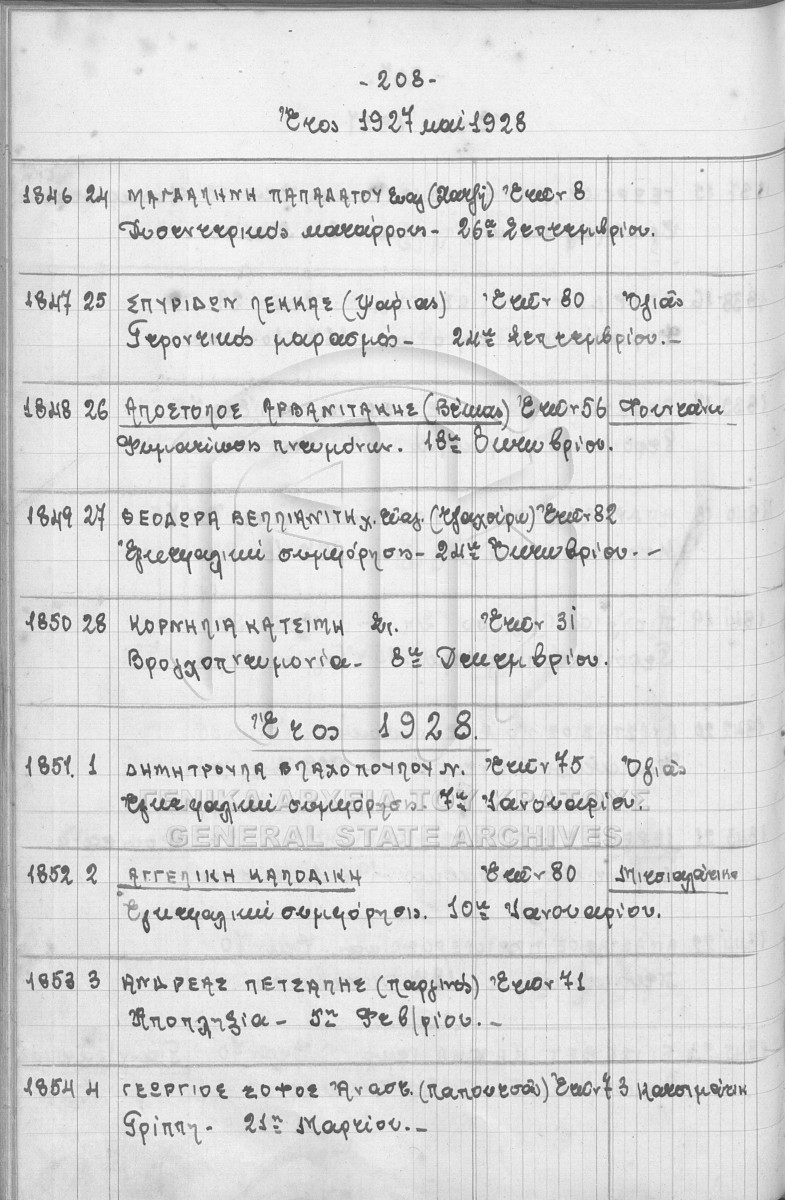 - 208 -
Ἔτος 1927 καί 1928
1846 24 ΜΑΓΔΑΛΗΝΗ ΠΑΠΑΔΑΤΟΥ Ἐτῶν 8
Δυσεντερικός κατάρρους - 26η Σεπτεμβρίου.
1847 25 ΣΠΥΡΙΔΩΝ ΛΕΚΚΑΣ (Ψαριας) Ἐτῶν 80 Ὀζιᾶς
Γεροντικός μαρασμός - 24η Σεπτεμβρίου. -
1848 26 ΑΠΟΣΤΟΛΟΣ ΑΡΒΑΝΙΤΑΚΗΣ (Βέκιας) Ἐτῶν 56 Φουντάνα
Φυματίωσις πνευμόνων. 18η Ὀκτωβρίου.
1849 27 ΘΕΟΔΩΡΑ ΒΕΛΛΙΑΝΙΤΗ χ. Εὐαγ. Ἐτῶν 82
Ἐγκεφαλική συμφόρησις - 24η Ὀκτωβρίου. -
1850 28 ΚΟΡΝΗΛΙΑ ΚΑΤΣΙΜΗ Ἐτῶν 31
Βρογχοπνευμονία - 8η Δεκεμβρίου.
Ἔτος 1928.
1851. 1 ΔΗΜΗΤΡΟΥΛΑ ΒΛΑΧΟΠΟΥΛΟΥ Ν. Ἐτῶν 75 Ὀζιᾶς
Ἐγκεφαλική συμφόρησις. 7η Ἰανουαρίου.
ΓΕΝΙΚΑ ΑΡΧΕΙΑ ΤΟΥ ΚΡΑΤΟΥΣ
GENERAL STATE ARCHIVES
1852 2 ΑΓΓΕΛΙΚΗ ΚΑΠΟΔΙΚΗ Ἐτῶν 80 Μιτσιαλάτικα
Ἐγκεφαλική συμφόρησις. 10η Ἰανουαρίου.
1853 3 ΑΝΔΡΕΑΣ ΠΕΤΣΑΛΗΣ (Παργινός) Ἐτῶν 71
Ἀποπληξία - 5η Φεβ/ρίου. -
1854 4 ΓΕΩΡΓΙΟΣ ΣΟΦΟΣ Ἀναστ. (Παπουτσᾶς) Ἐτῶν 73
Γρίππη - 21η Μαρτίου. -